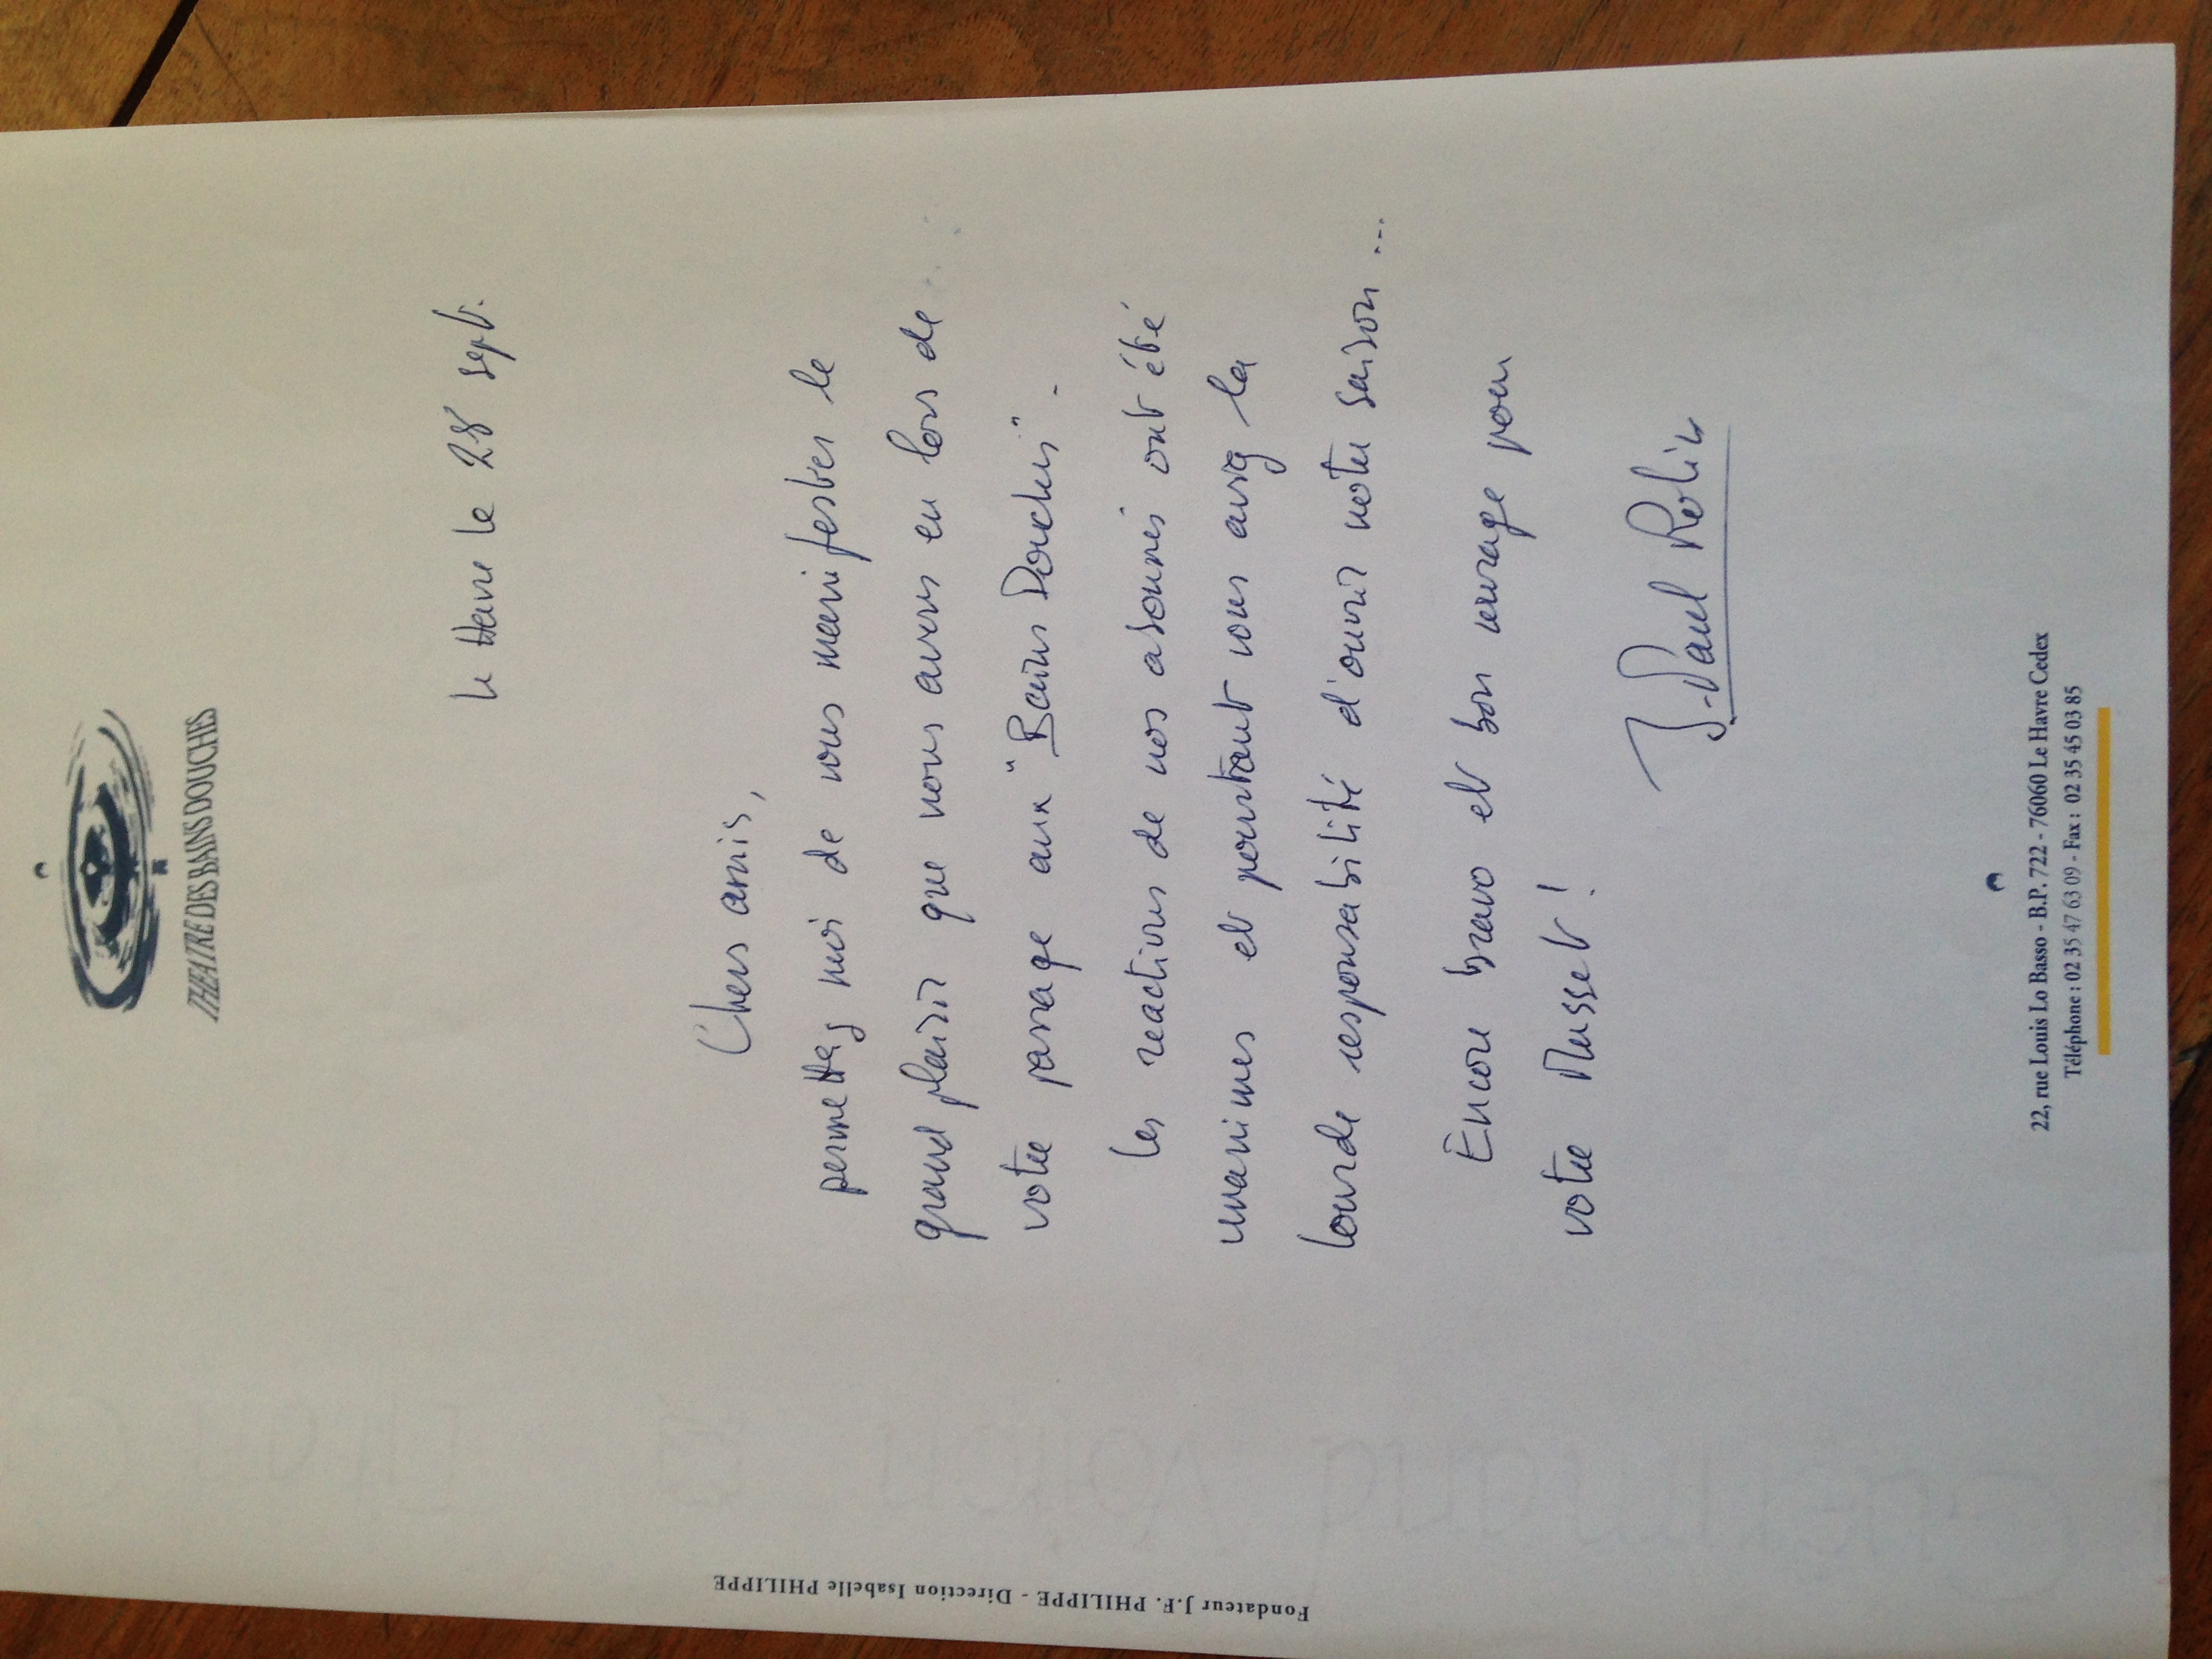 THEATRE DES BAINS DOUCHES
Le Havre le 28 sept.
Chers amis,
permettez moi de vous manifester le
grand plaisir que nous avons eu lors de
votre passage aux "Bains Douches".
Les reactions de nos abonnés ont été
unanimes et pourtant vous aviez la
lourde responsabilité d'ouvrir notre saison...
Encore bravo et bon courage pour
votre Musset!
J-Paul Rolin
22, rue Louis Lo Basso - B.P. 722 - 76060 Le Havre Cedex
Téléphone : 02 35 47 63 09 - Fax : 02 35 45 03 85
Fondateur J.F. PHILIPPE - Direction Isabelle PHILIPPE